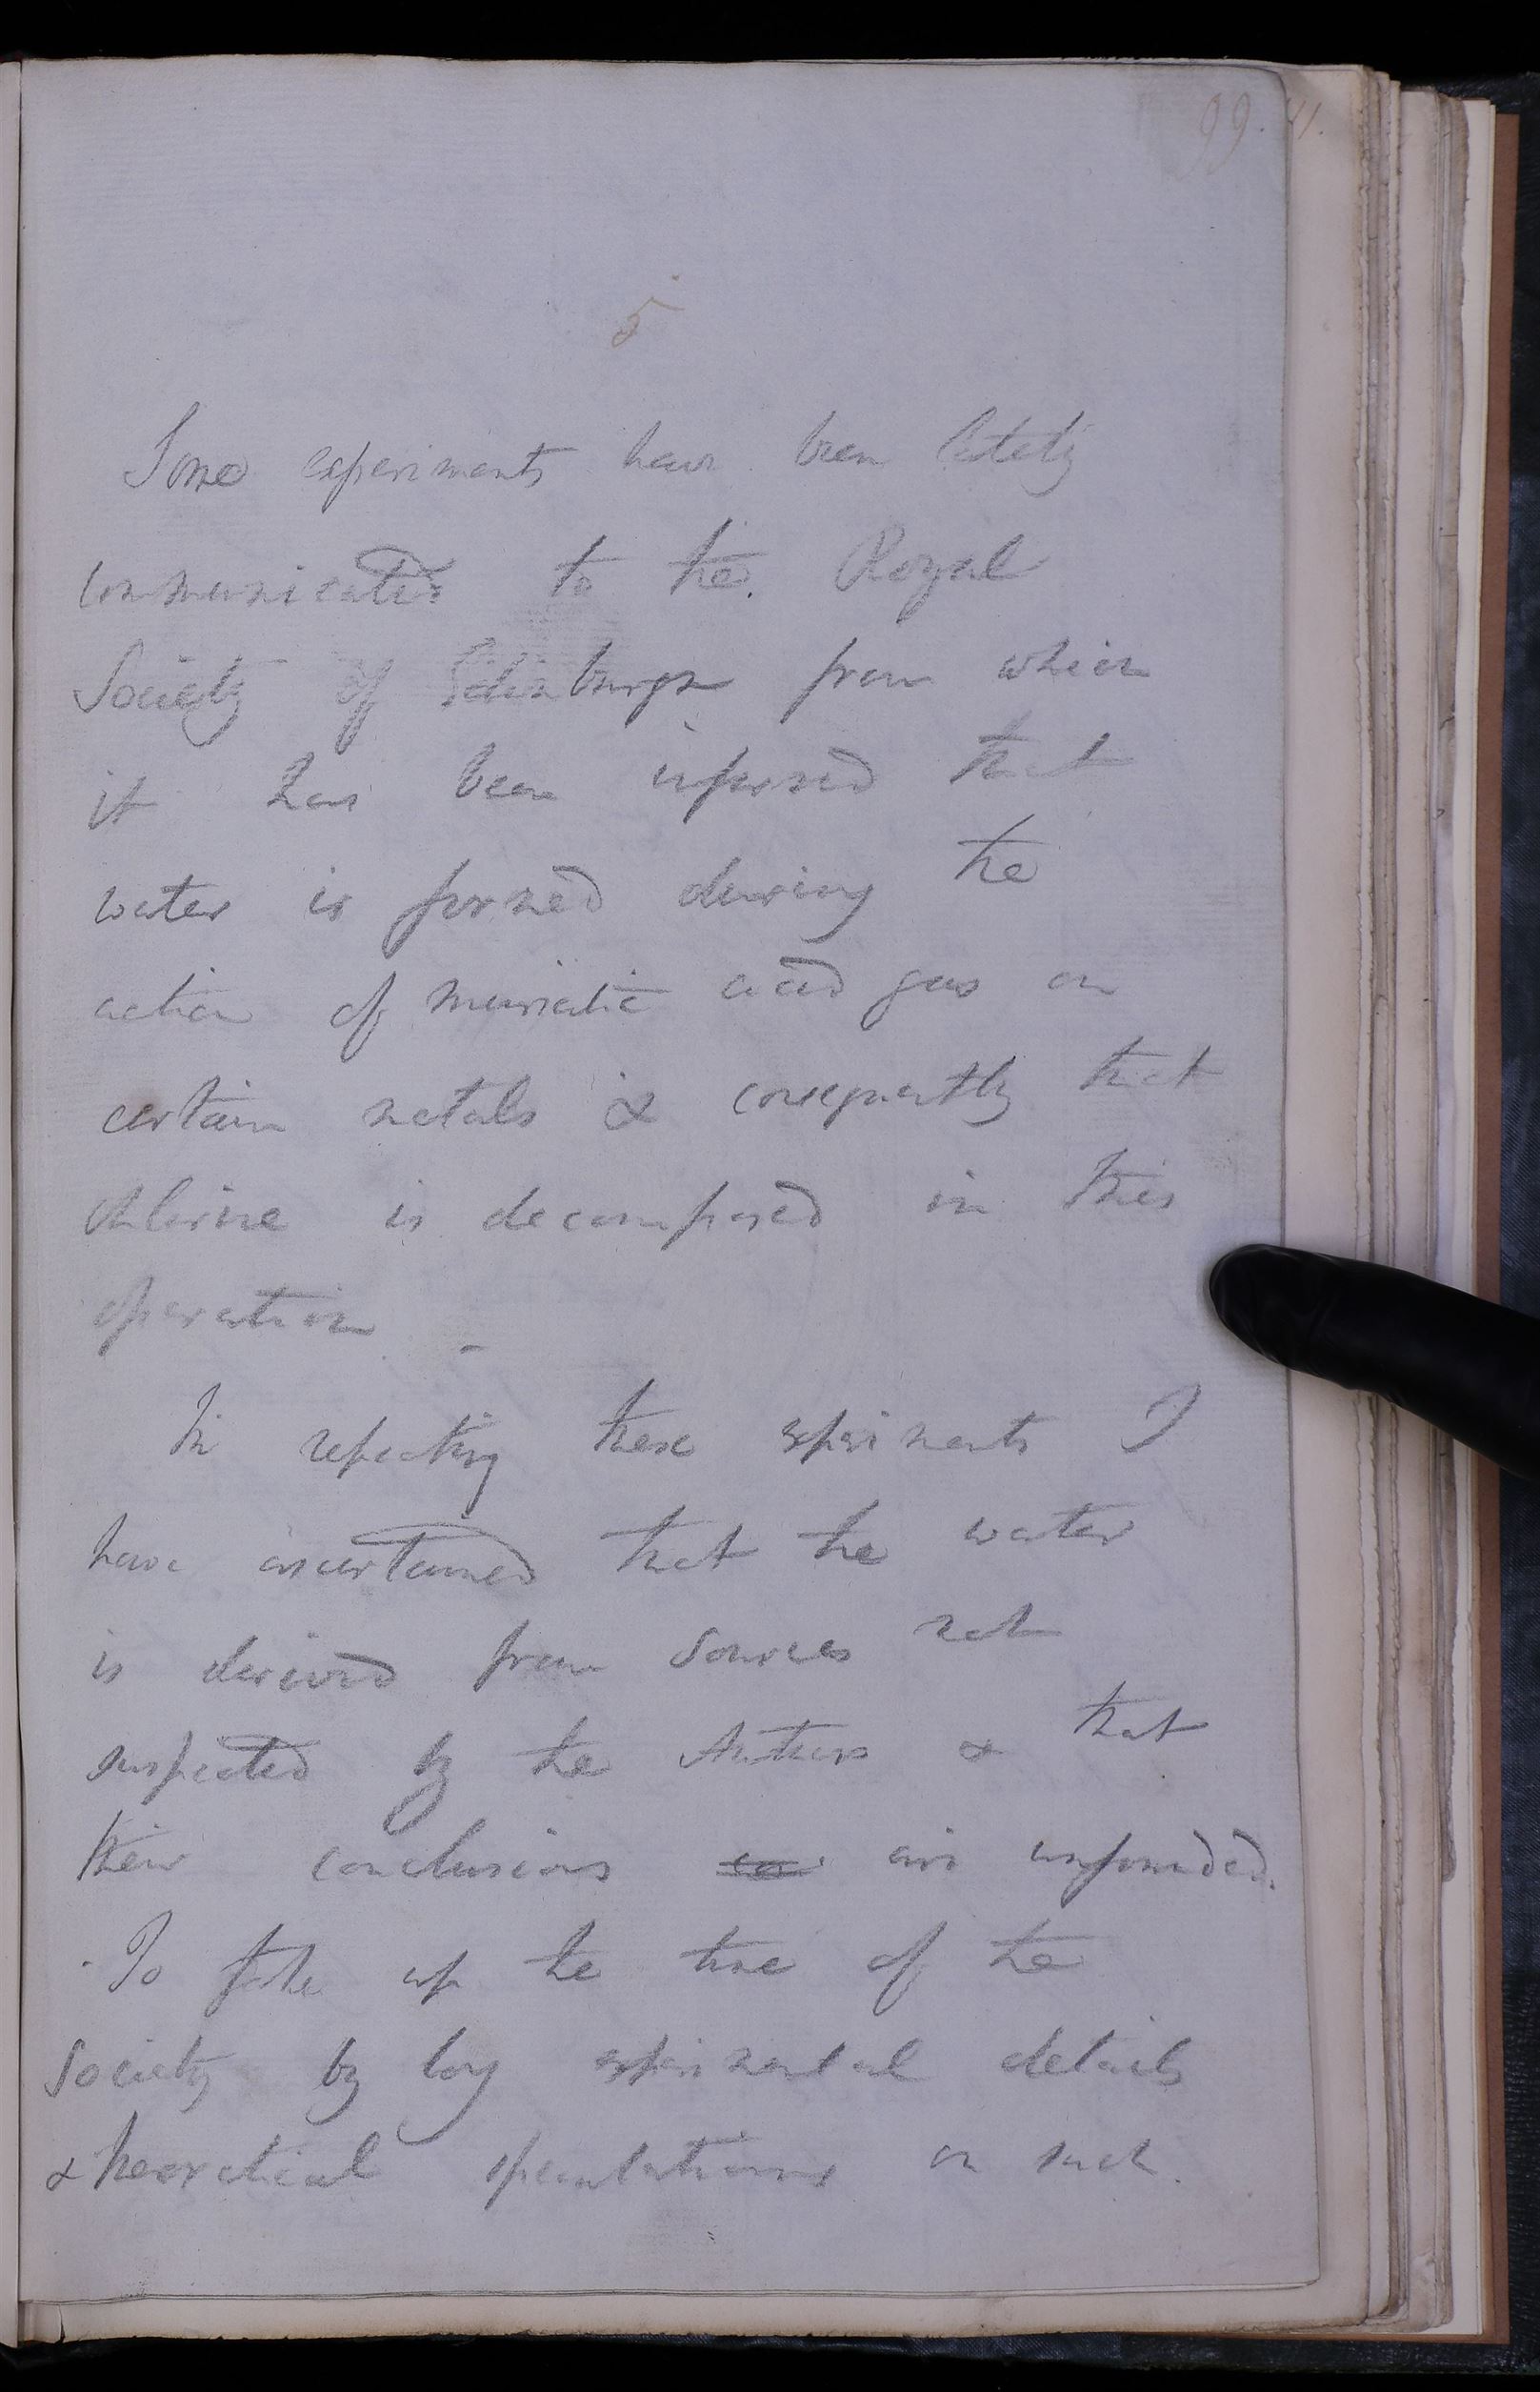 99.
41.
5
Some experiments have been lately
communicated to the Royal
Society of Edinburgh from which
it has been inferred that
water is formed during the
action of muriatic acid gas on
certain metals & consequently that
chlorine is decomposed in this
operation _
In repeating these experiments I
have ascertained that the water
is derived from sources not
suspected by the Authors & that
their conclusions are unfounded.
To take up the time of the
Society by long experimental details
& theoretical speculations on such